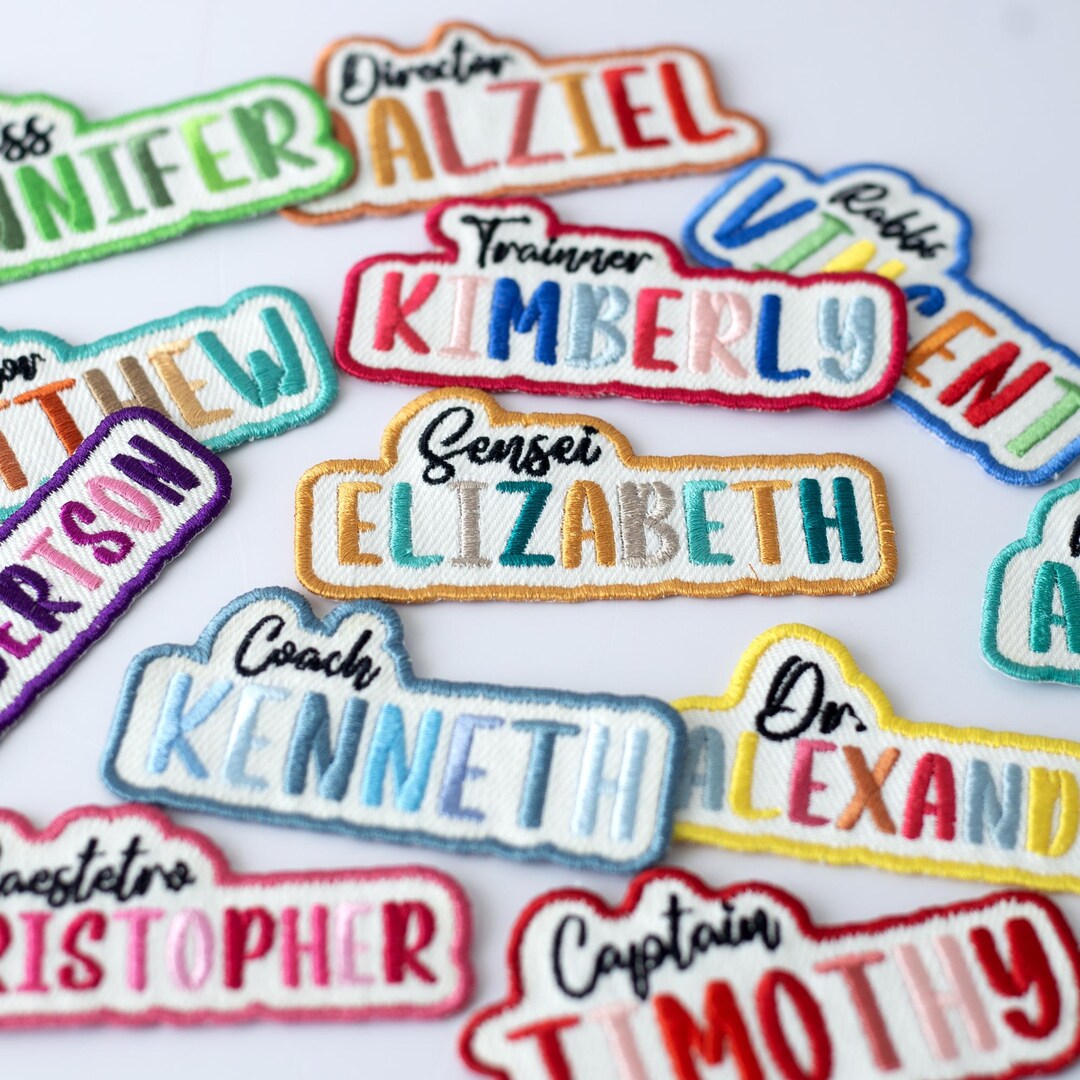 ss
NNIFER
Director
ALZIEL
Rabbi
VINCENT
Trainner
KIMBERLY
or
TTHEW
ERTSON
Sensei
ELIZABETH
A
Coach
KENNETH
Dr.
ALEXAND
aestetro
RISTOPHER
Captain
TIMOTHY